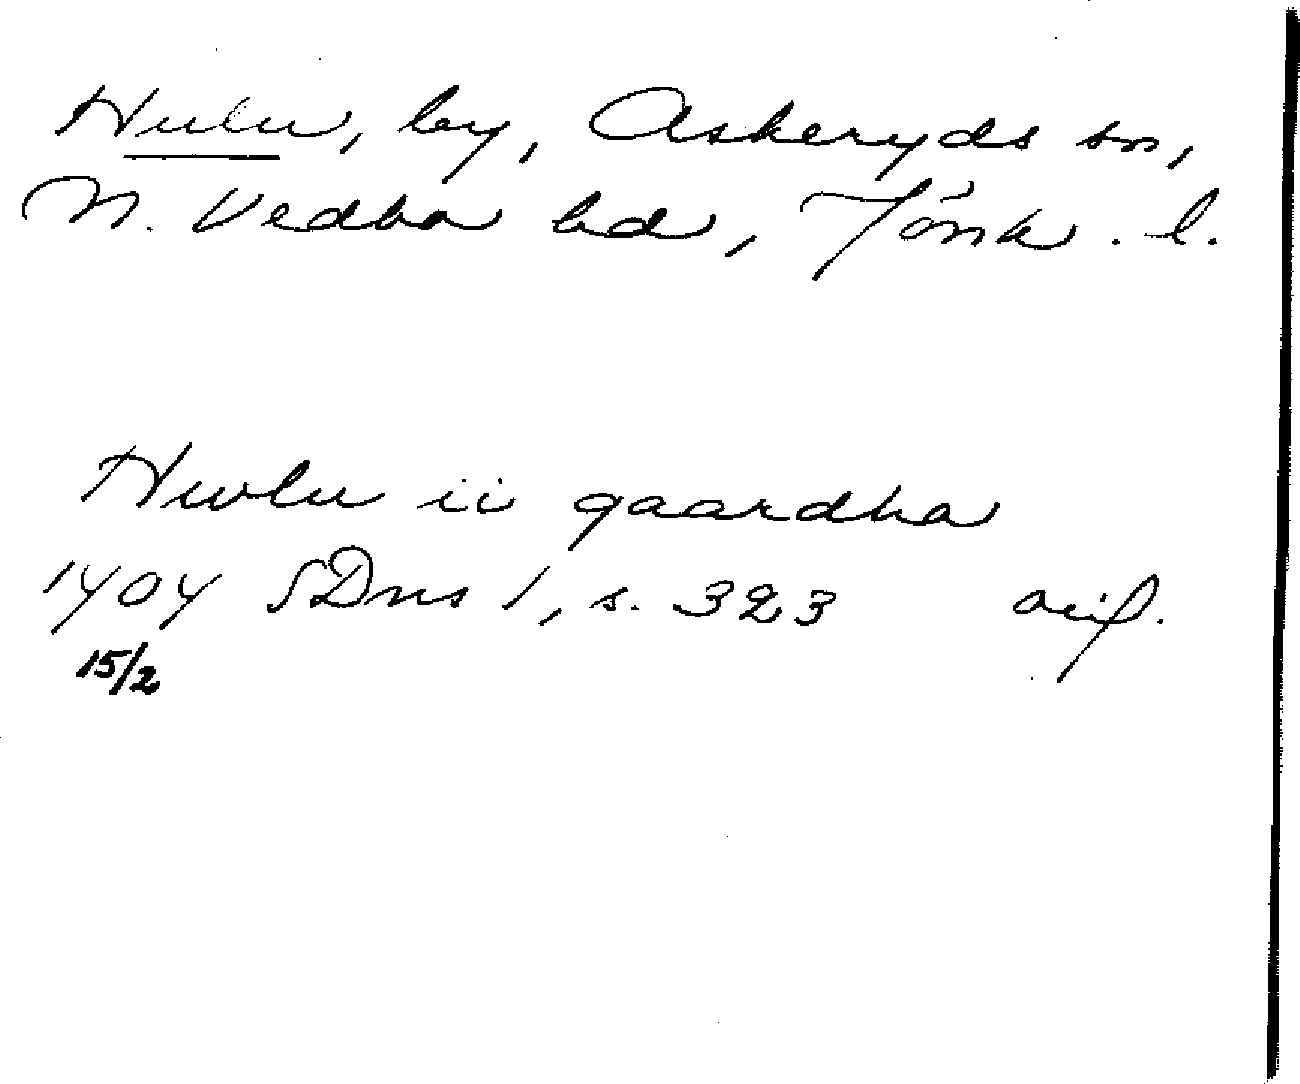 Hulu, by, Askeryds sn,
N. Vedbo hd, Jönk. l.
Hwlu ii gaardha
1404 SDns 1, s. 323 avif.
15/2